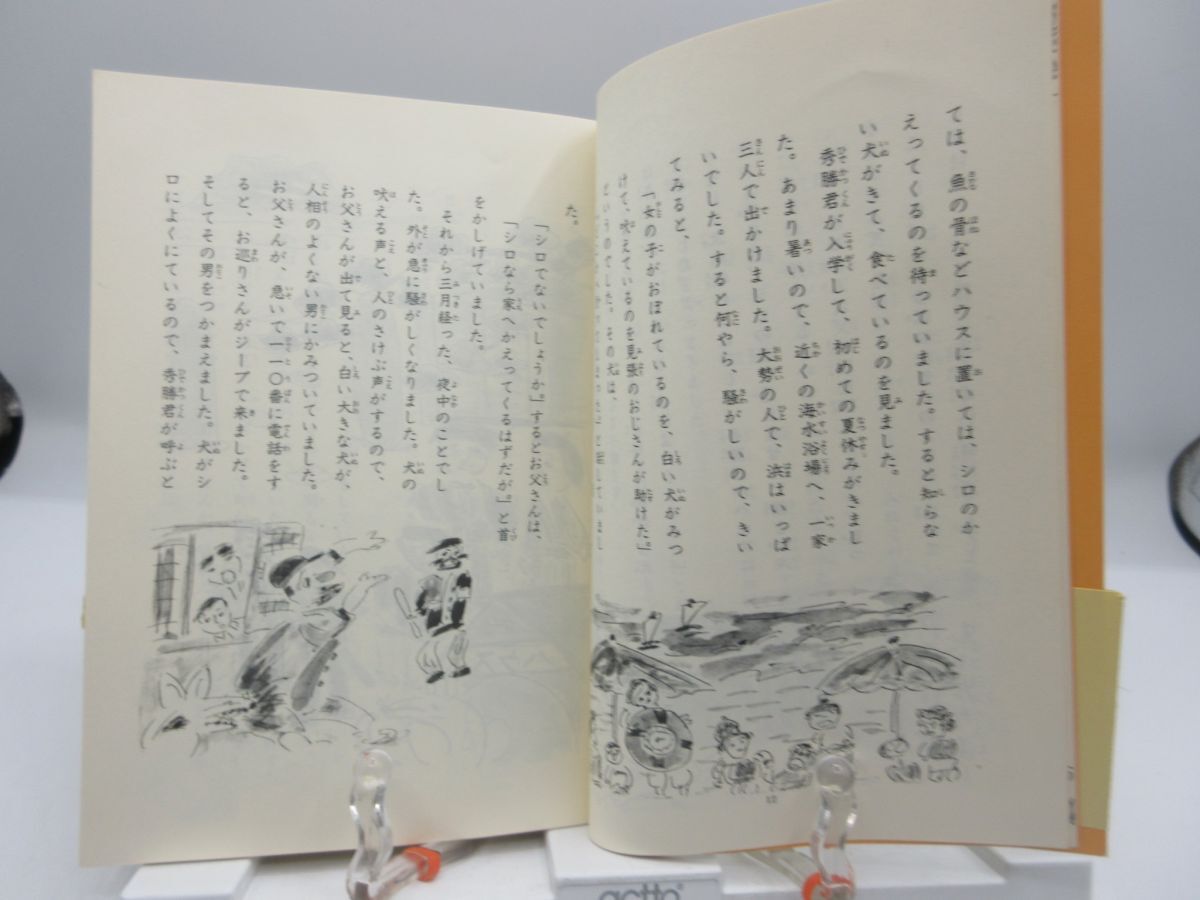 ては、魚の骨などハウスに置いては、シロのか
えってくるのを待っていました。すると知らな
い犬がきて、食べているのを見ました。
秀勝君が入学して、初めての夏休みがきまし
た。あまり暑いので、近くの海水浴場へ、一家
三人で出かけました。大勢の人で、浜はいっぱ
いでした。すると何やら、騒がしいので、きい
てみると、
「女の子がおぼれているのを、白い犬がみつ
けて、吠えているのを見張のおじさんが助けた。」
というのでした。その犬は、
た。
「シロでないでしょうか」するとお父さんは、
「シロなら家へかえってくるはずだが」と首
をかしげていました。
それから三月経った、夜中のことでし
た。外が急に騒がしくなりました。犬の
吠える声と、人のさけぶ声がするので、
お父さんが出て見ると、白い大きな犬が、
人相のよくない男にかみついていました。
お父さんが、急いで一一〇番に電話をす
ると、お巡りさんがジープで来ました。
そしてその男をつかまえました。犬がシ
ロによくにているので、秀勝君が呼ぶと
12
actto